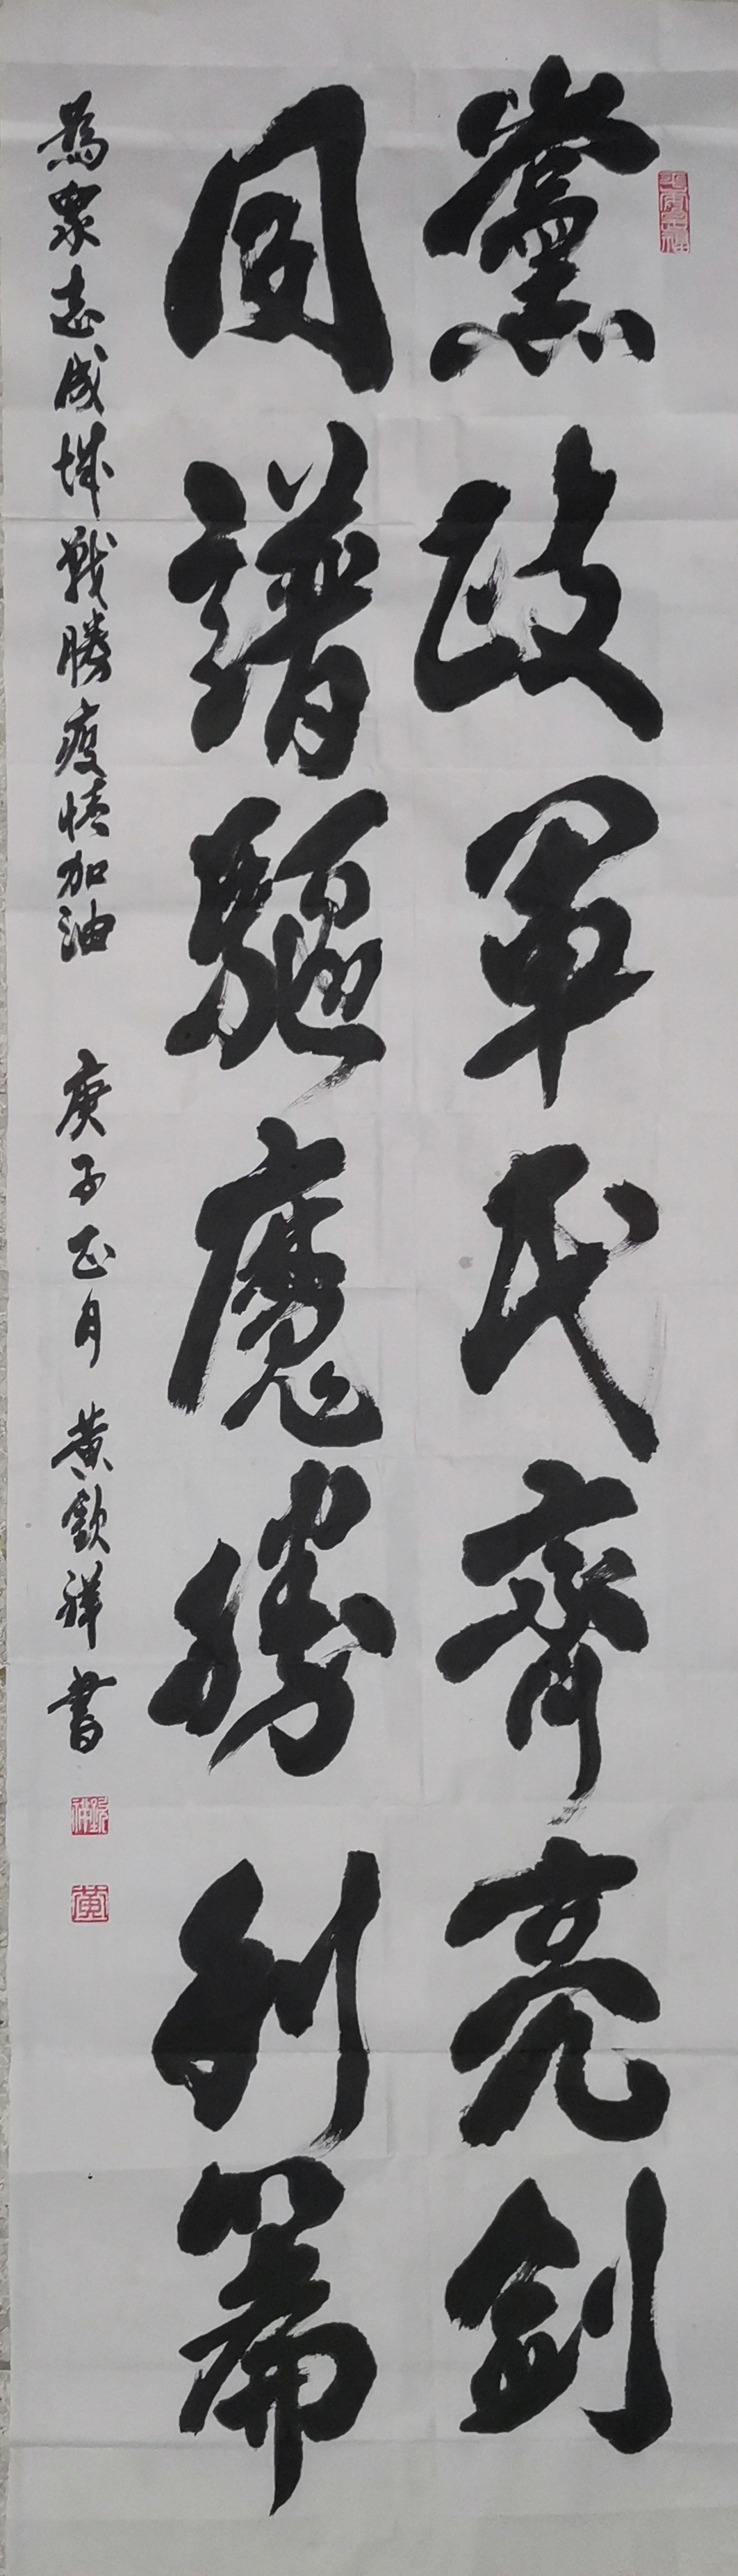 黨政軍民齊亮劍
同譜驅魔勝利篇
為眾志成城戰勝疫情加油 庚子正月 黃欽祥書